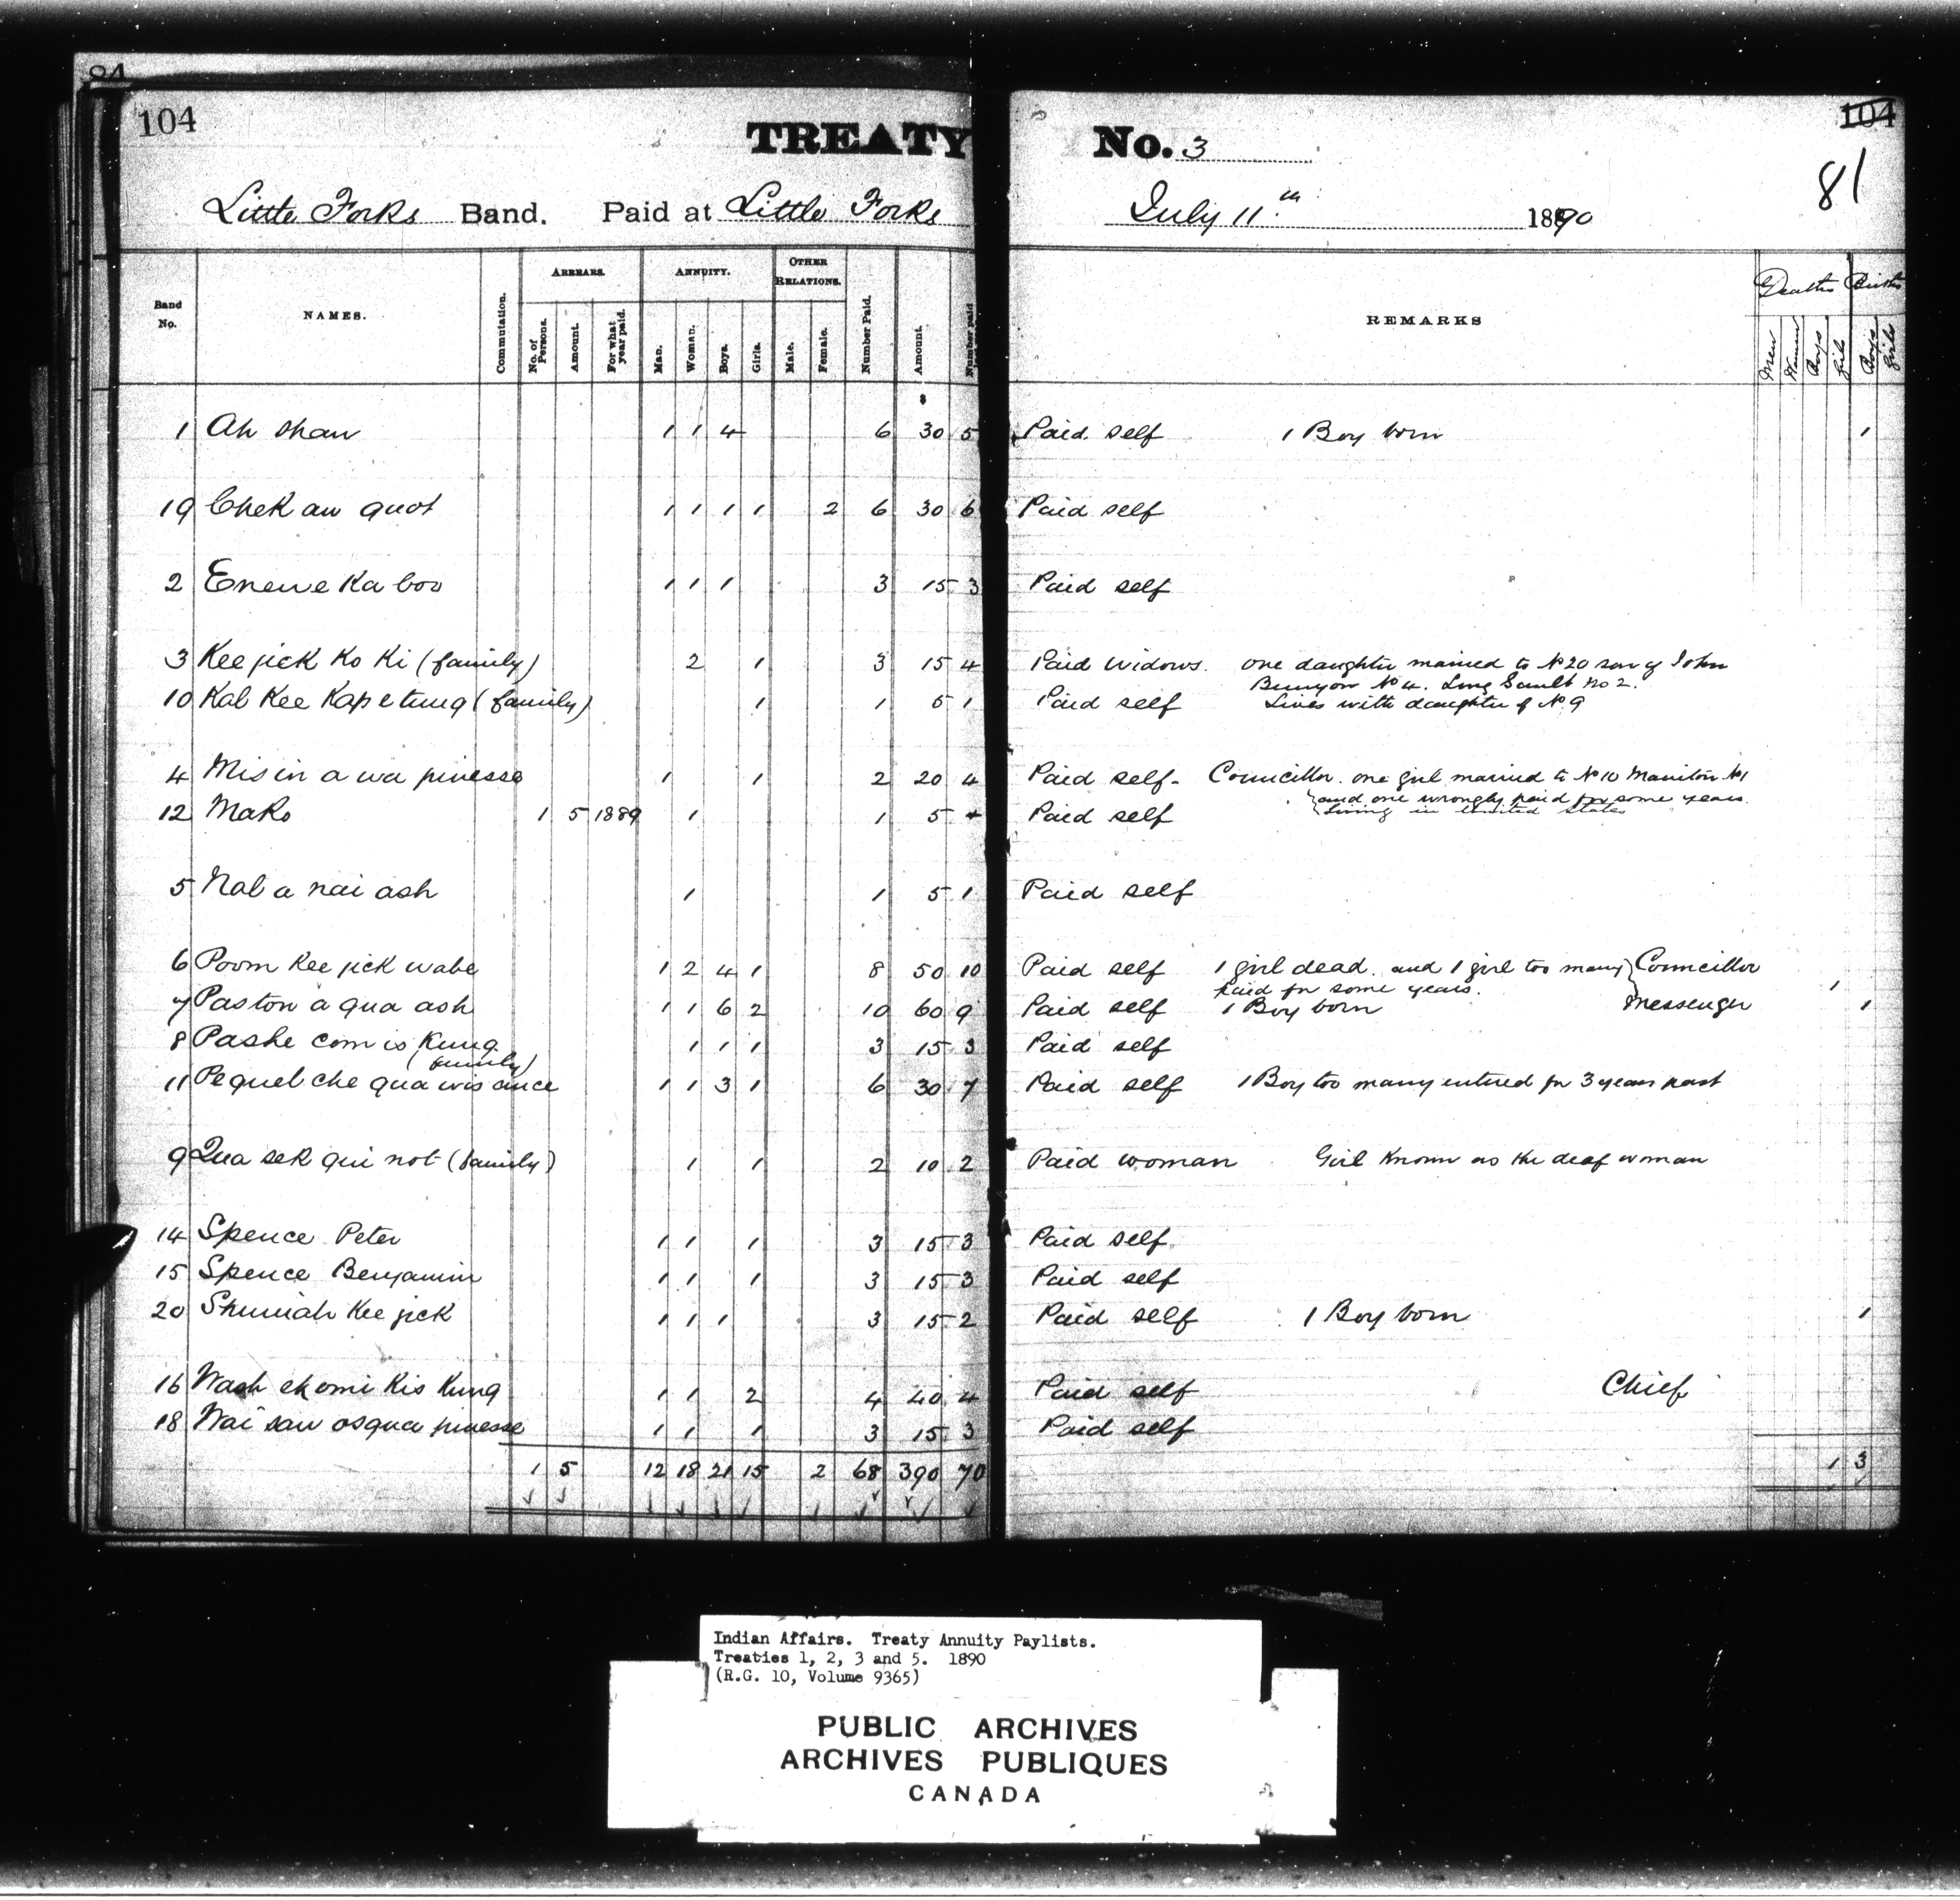 84
104
104
81
TREATY No. 3
Little Forks Band. Paid at Little Forks July 11th 1890
Band No. NAMES. Commutation. ARREARS. No. of Persons. Amount. For what year paid. ANNUITY. Man. Woman. Boys. Girls. OTHER RELATIONS. Male. Female. Number Paid. Amount. Number paid REMARKS Deaths Men Women Boys Girls Births Boys Girls
$
1 Ah shaw 1 1 4 6 30 5 Paid self 1 Boy born 1
19 Chek aw quot 1 1 1 1 2 6 30 6 Paid self
2 Enewe Ka boo 1 1 1 3 15 3 Paid self
3 Kee jick Ko Ki (family) 2 1 3 15 4 Paid widows. one daughter married to No 20 son of John
Bunyon No 4. Long Sault No 2.
10 Kab Kee Kape tung (family) 1 1 5 1 Paid self Lives with daughter of No 9
4 Mis in a wa pinesse 1 1 2 20 4 Paid self - Councillor. one girl married to No 10 Manitou No 1
and one wrongly paid for some years
living in United States
12 Mako 1 5 1889 1 1 5 Paid self
5 Nab a nai ash 1 1 5 1 Paid self
6 Poom Kee jick wabe 1 2 4 1 8 50 10 Paid self 1 girl dead. and 1 girl too many Councillor 1
paid for some years.
7 Paston a qua ash 1 1 6 2 10 60 9 Paid self 1 Boy born Messenger 1
8 Pashe com is Kung 1 1 1 3 15 3 Paid self
(family)
11 Pequel che qua wis ance 1 1 3 1 6 30 7 Paid self 1 Boy too many entered for 3 years past
9 Qua sek qui not (family) 1 1 2 10 2 Paid woman Girl known as the deaf woman
14 Spence Peter 1 1 1 3 15 3 Paid self.
15 Spence Benjamin 1 1 1 3 15 3 Paid self
20 Shuniah Kee jick 1 1 1 3 15 2 Paid self 1 Boy born 1
16 Wash ekomi Kis Kung 1 1 2 4 40 4 Paid self Chief
18 Wai saw osqua pinesse 1 1 1 3 15 3 Paid self
1 5 12 18 21 15 2 68 390 70 1 3
Indian Affairs. Treaty Annuity Paylists.
Treaties 1, 2, 3 and 5. 1890
(R.G. 10, Volume 9365)
PUBLIC ARCHIVES
ARCHIVES PUBLIQUES
CANADA